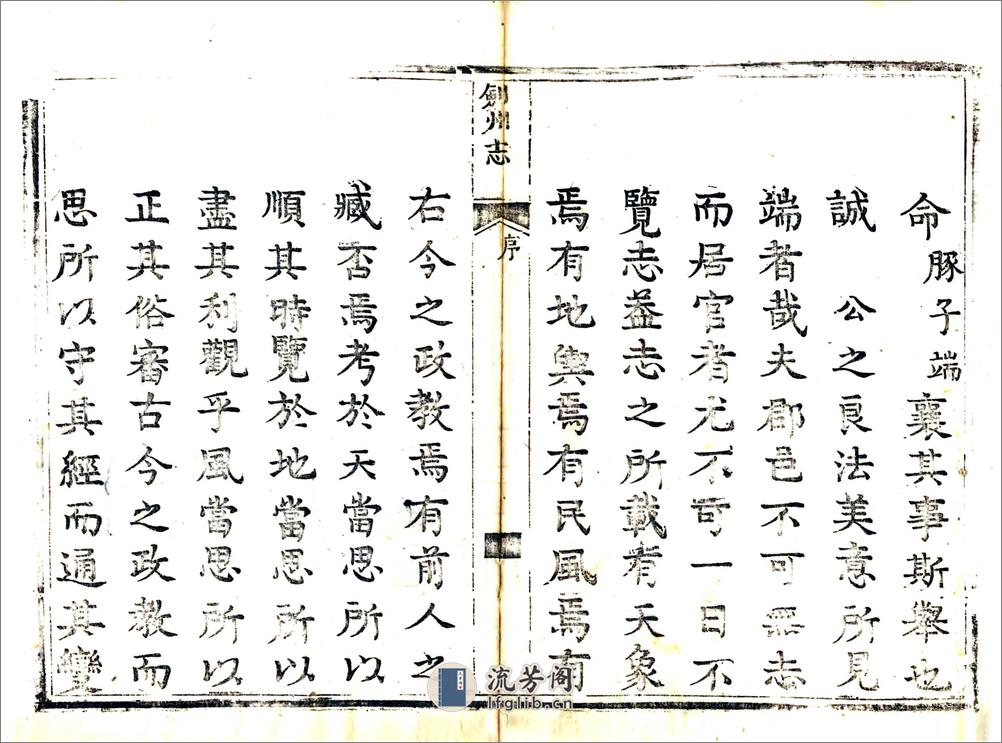 命豚子端襄其事斯舉也
誠　公之良法美意所見
端者哉夫郡邑不可無志
而居官者尤不可一日不
覽志葢志之所載有天象
焉有地輿焉有民風焉有
劍州志
序
右今之政教焉有前人之
臧否焉考於天當思所以
順其時覽於地當思所以
盡其利觀乎風當思所以
正其俗審古今之政教而
思所以守其經而通其變
流芳阁
lfglib.cn